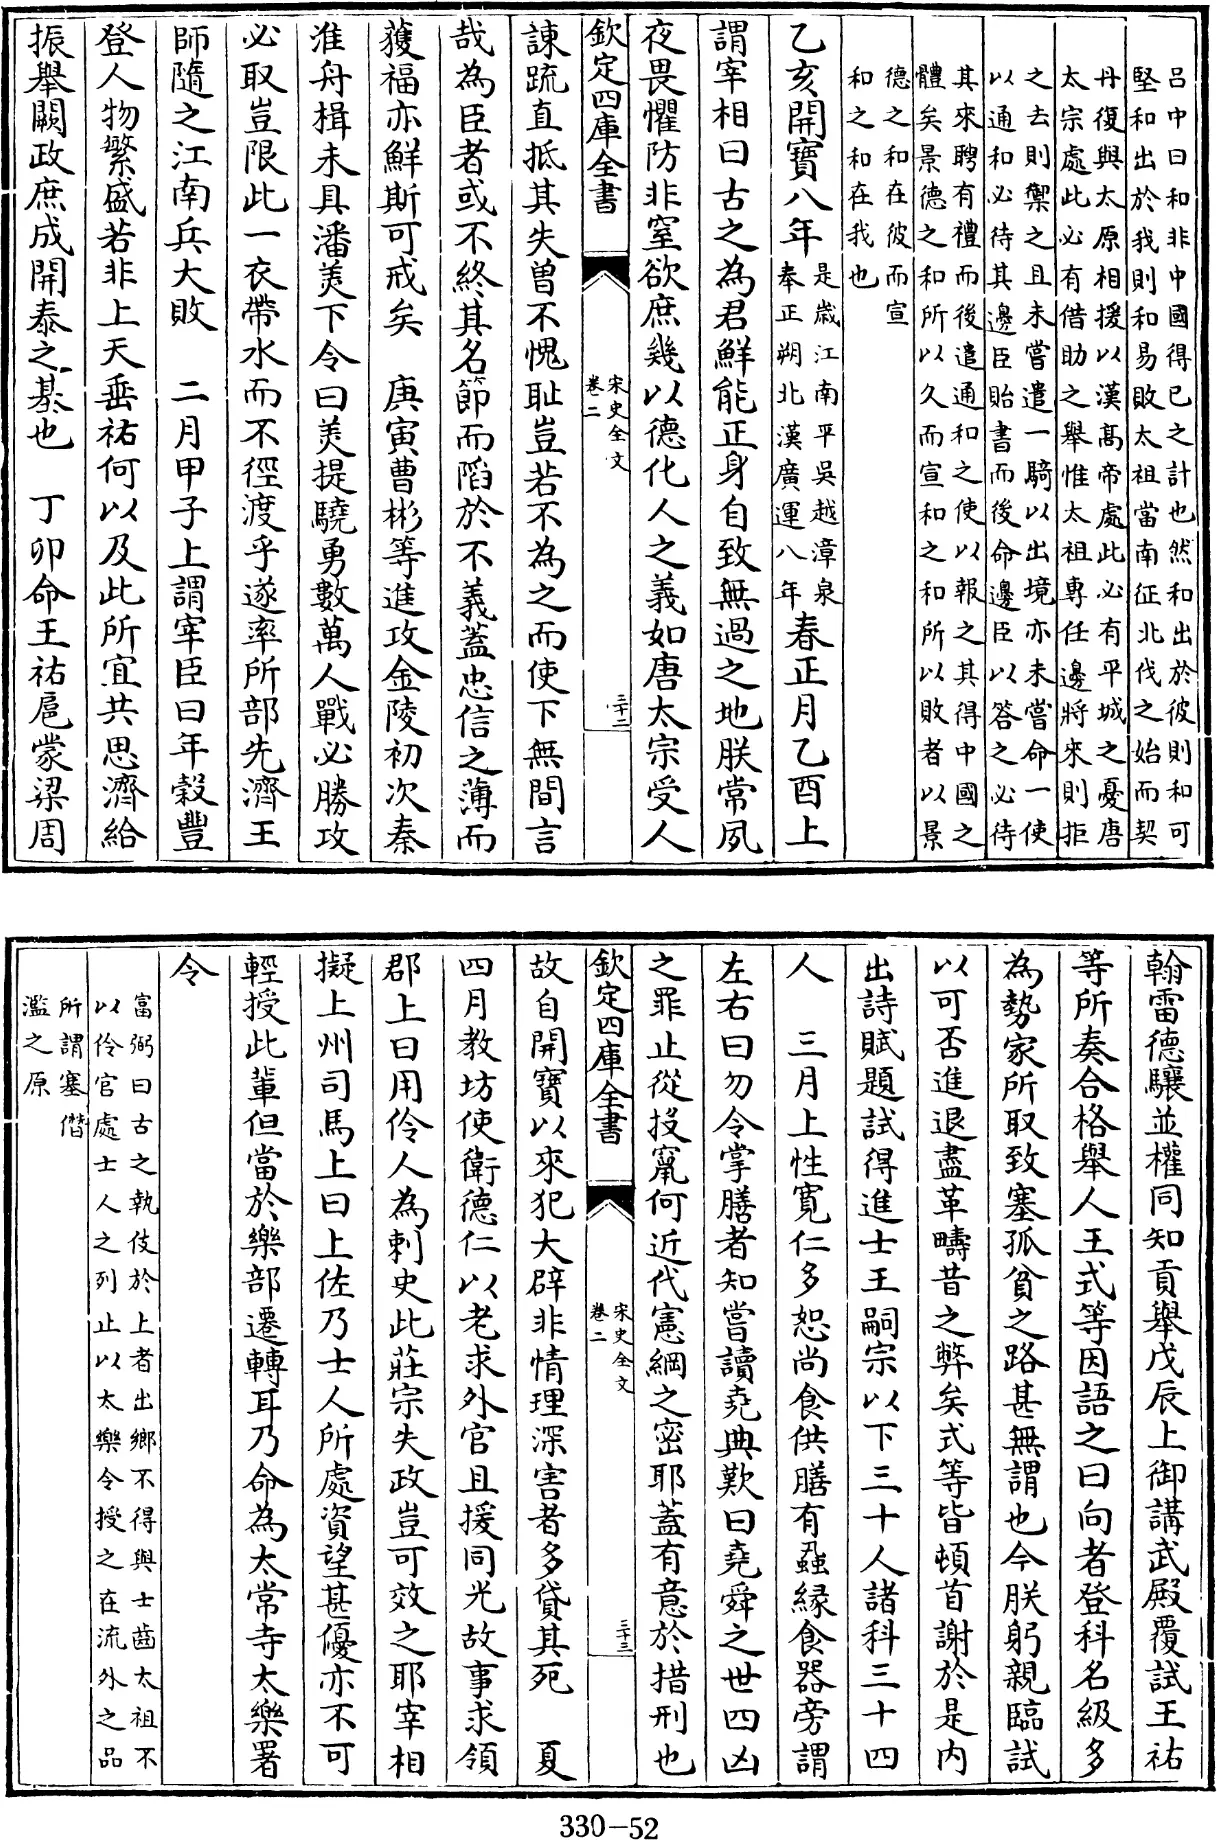 呂中曰和非中國得已之計也然和出於彼則和可
堅和出於我則和易敗太祖當南征北伐之始而契
丹復與太原相援以漢髙帝處此必有平城之憂唐
太宗處此必有借助之舉惟太祖專任邊將來則拒
之去則禦之且未嘗遣一騎以出境亦未嘗命一使
以通和必待其邊臣貽書而後命邊臣以答之必待
其來聘有禮而後遣通和之使以報之其得中國之
體矣景徳之和所以久而宣和之和所以敗者以景
徳之和在彼而宣
和之和在我也
乙亥開寶八年是歲江南平吳越漳泉
奉正朔北漢廣運八年春正月乙酉上
謂宰相曰古之為君鮮能正身自致無過之地朕常夙
夜畏懼防非窒欲庶幾以德化人之義如唐太宗受人
欽定四庫全書
宋史全文
卷二
三十二
諫疏直抵其失曾不愧恥豈若不為之而使下無間言
哉為臣者或不終其名節而䧟於不義蓋忠信之薄而
獲福亦鮮斯可戒矣　庚寅曹彬等進攻金陵初次秦
淮舟楫未具潘羙下令曰羙提驍勇數萬人戰必勝攻
必取豈限此一衣帶水而不徑渡乎遂率所部先濟王
師隨之江南兵大敗　二月甲子上謂宰臣曰年穀豐
登人物繁盛若非上天垂祐何以及此所宜共思濟給
振舉闕政庶成開泰之基也　丁卯命王祐扈蒙梁周
翰雷德驤並權同知貢舉戊辰上御講武殿覆試王祐
等所奏合格舉人王式等因語之曰向者登科名級多
為勢家所取致塞孤貧之路甚無謂也今朕躬親臨試
以可否進退盡革疇昔之弊矣式等皆頓首謝於是内
出詩賦題試得進士王嗣宗以下三十人諸科三十四
人　三月上性寛仁多恕尚食供膳有蝨緣食器旁謂
左右曰勿令掌膳者知嘗讀堯典歎曰堯舜之世四凶
之罪止從投竄何近代憲網之密耶蓋有意於措刑也
欽定四庫全書
宋史全文
卷二
三十三
故自開寶以來犯大辟非情理深害者多貸其死　夏
四月教坊使衛德仁以老求外官且援同光故事求領
郡上曰用伶人為刺史此莊宗失政豈可效之耶宰相
擬上州司馬上曰上佐乃士人所處資望甚優亦不可
輕授此輩但當於樂部遷轉耳乃命為太常寺太樂署
令
富弼曰古之執伎於上者出鄉不得與士齒太祖不
以伶官處士人之列止以太樂令授之在流外之品
所謂塞僭
濫之原
330-52